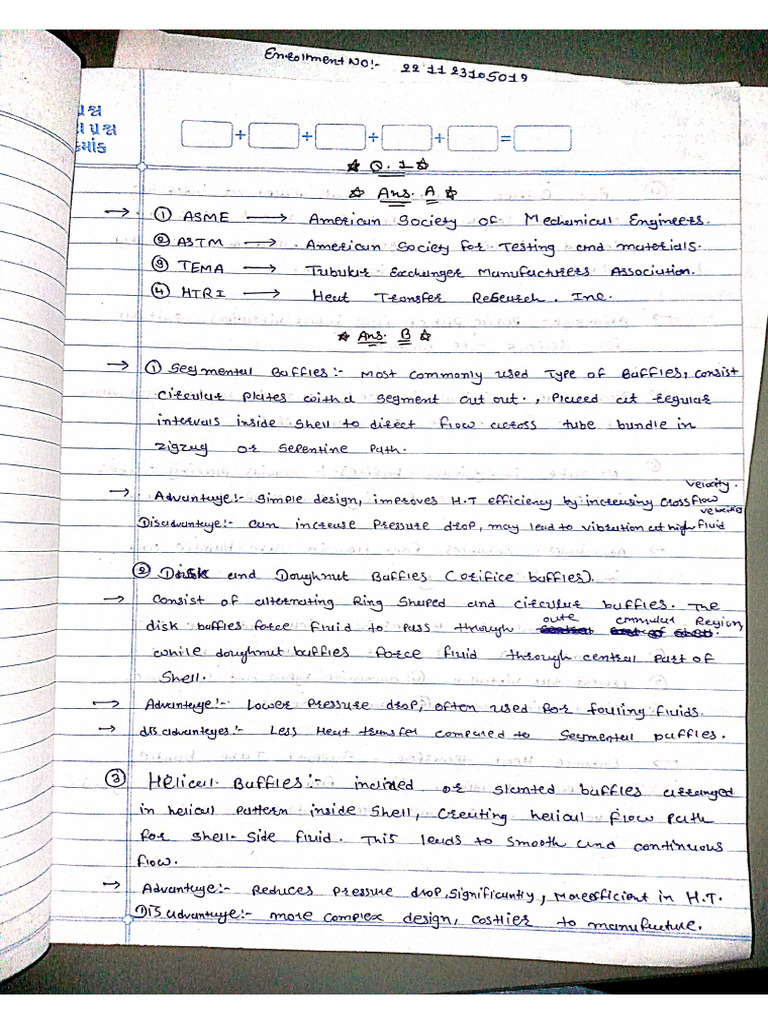 Enrollment NO:- 221123105019
પ્રશ્ન
પ્રશ્ન
ક્રમાંક
+ + + + =
☆ Q. 1 ☆
☆ Ans. A ☆
→ ① ASME → American Society of Mechanical Engineers.
② ASTM → American Society for Testing and materials.
③ TEMA → Tubular Exchanger Manufacturers Association.
④ HTRI → Heat Transfer Research. Inc.
☆ Ans. B ☆
→ ① Segmental Baffles:- Most commonly used Type of Baffles, consist
circular plates with a segment cut out., placed at regular
intervals inside shell to direct flow across tube bundle in
zigzag or sepentine path.
→ Advantage:- Simple design, improves H.T efficiency by increasing crossflow velocity.
Disadvantage:- can increase pressure drop, may lead to vibration at high fluid velocity
② Disk and Doughnut Baffles (orifice baffles).
→ Consist of alternating Ring shaped and circular baffles. The
disk baffles force fluid to pass through oute annular Region,
while doughnut baffles force fluid through central part of
Shell.
→ Advantage:- Lower pressure drop, often used for fouling fluids.
→ disadvantages:- Less Heat transfer compared to segmental baffles.
③ Helical Baffles:- inclined or slanted baffles arranged
in helical pattern inside shell, creating helical flow path
for shell-side fluid. This leads to smooth and continuous
flow.
→ Advantage:- Reduces pressure drop, significantly, More efficient in H.T.
Disadvantage:- more complex design, costlier to manufacture.